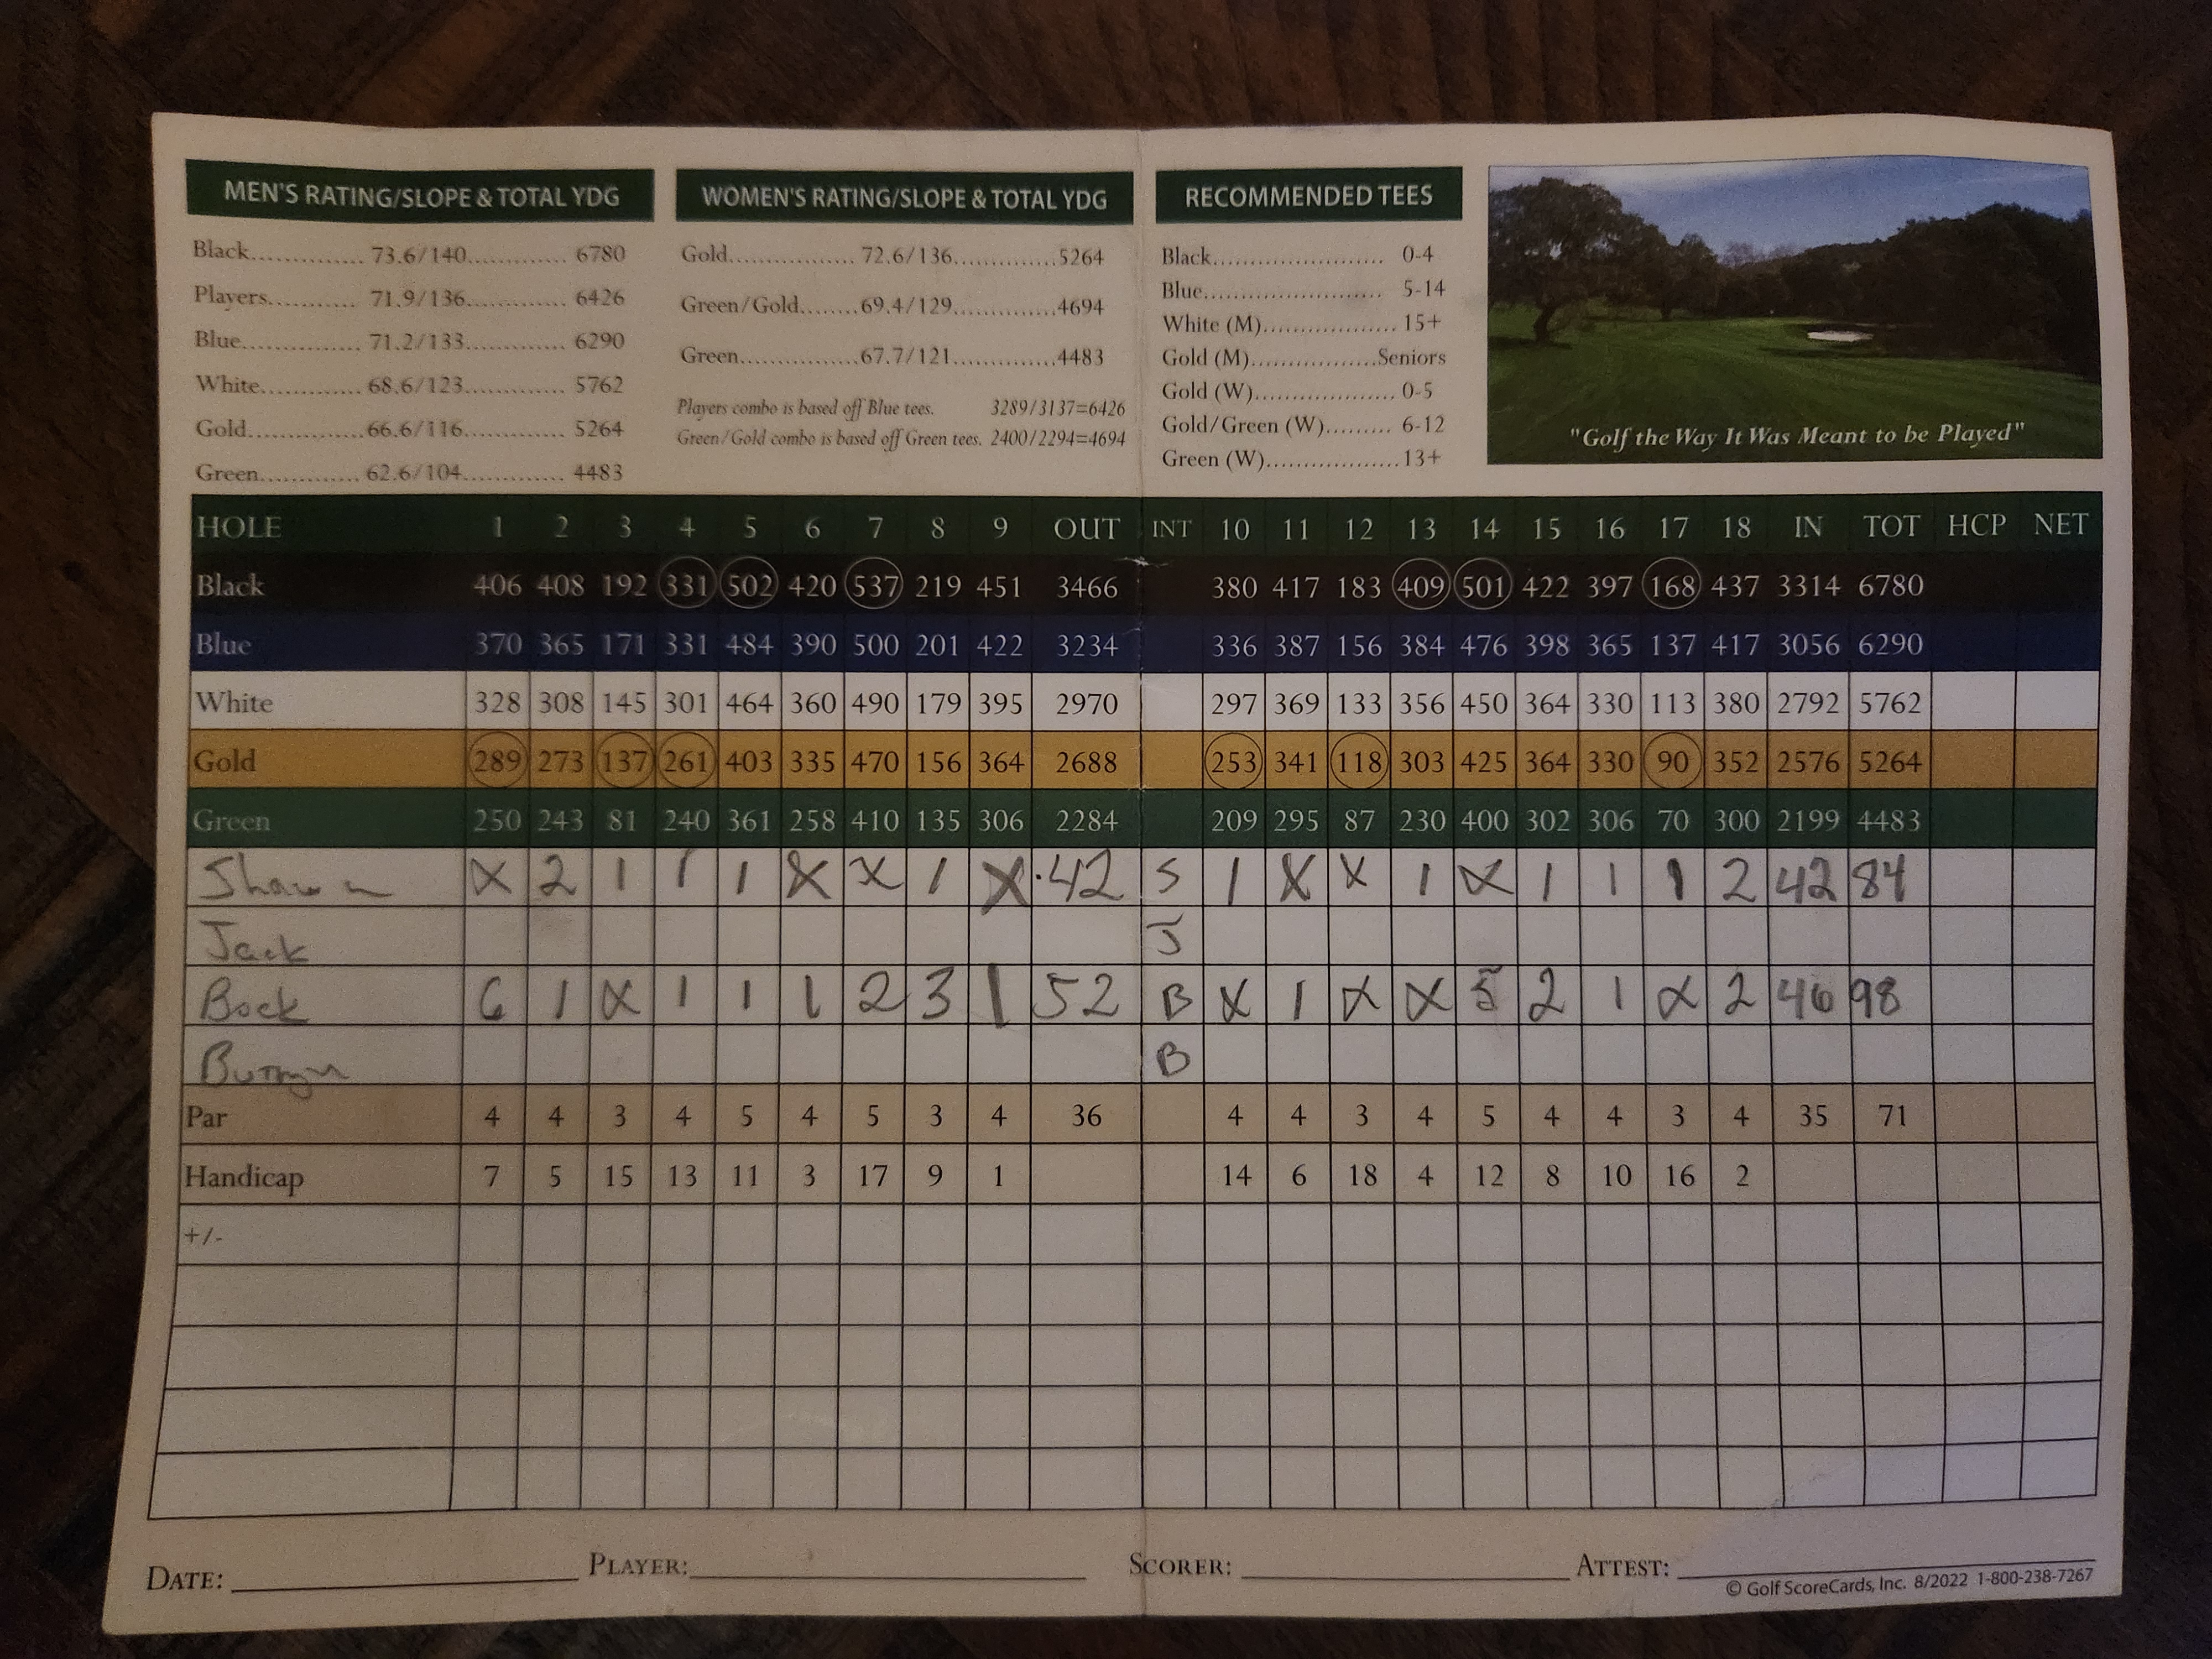 MEN'S RATING/SLOPE & TOTAL YDG
Black.............. 73.6/140............ 6780
Players........... 71.9/136............ 6426
Blue............... 71.2/133............ 6290
White............. 68.6/123............ 5762
Gold............... 66.6/116............ 5264
Green............. 62.6/104............ 4483
WOMEN'S RATING/SLOPE & TOTAL YDG
Gold................... 72.6/136...............5264
Green/Gold........69.4/129...............4694
Green...................67.7/121...............4483
Players combo is based off Blue tees. 3289/3137=6426
Green/Gold combo is based off Green tees. 2400/2294=4694
RECOMMENDED TEES
Black......................... 0-4
Blue.......................... 5-14
White (M)................... 15+
Gold (M)..................Seniors
Gold (W).................... 0-5
Gold/Green (W)......... 6-12
Green (W)...................13+
"Golf the Way It Was Meant to be Played"
HOLE 1 2 3 4 5 6 7 8 9 OUT INT 10 11 12 13 14 15 16 17 18 IN TOT HCP NET
Black 406 408 192 331 502 420 537 219 451 3466 380 417 183 409 501 422 397 168 437 3314 6780
Blue 370 365 171 331 484 390 500 201 422 3234 336 387 156 384 476 398 365 137 417 3056 6290
White 328 308 145 301 464 360 490 179 395 2970 297 369 133 356 450 364 330 113 380 2792 5762
Gold 289 273 137 261 403 335 470 156 364 2688 253 341 118 303 425 364 330 90 352 2576 5264
Green 250 243 81 240 361 258 410 135 306 2284 209 295 87 230 400 302 306 70 300 2199 4483
Shawn X 2 1 1 1 X X 1 X 42 S 1 X X 1 X 1 1 1 2 42 84
Jack J
Bock 6 1 X 1 1 1 2 3 1 52 B X 1 X X 5 2 1 X 2 46 98
B
Par 4 4 3 4 5 4 5 3 4 36 4 4 3 4 5 4 4 3 4 35 71
Handicap 7 5 15 13 11 3 17 9 1 14 6 18 4 12 8 10 16 2
+/-
DATE: PLAYER: SCORER: ATTEST:
© Golf ScoreCards, Inc. 8/2022 1-800-238-7267